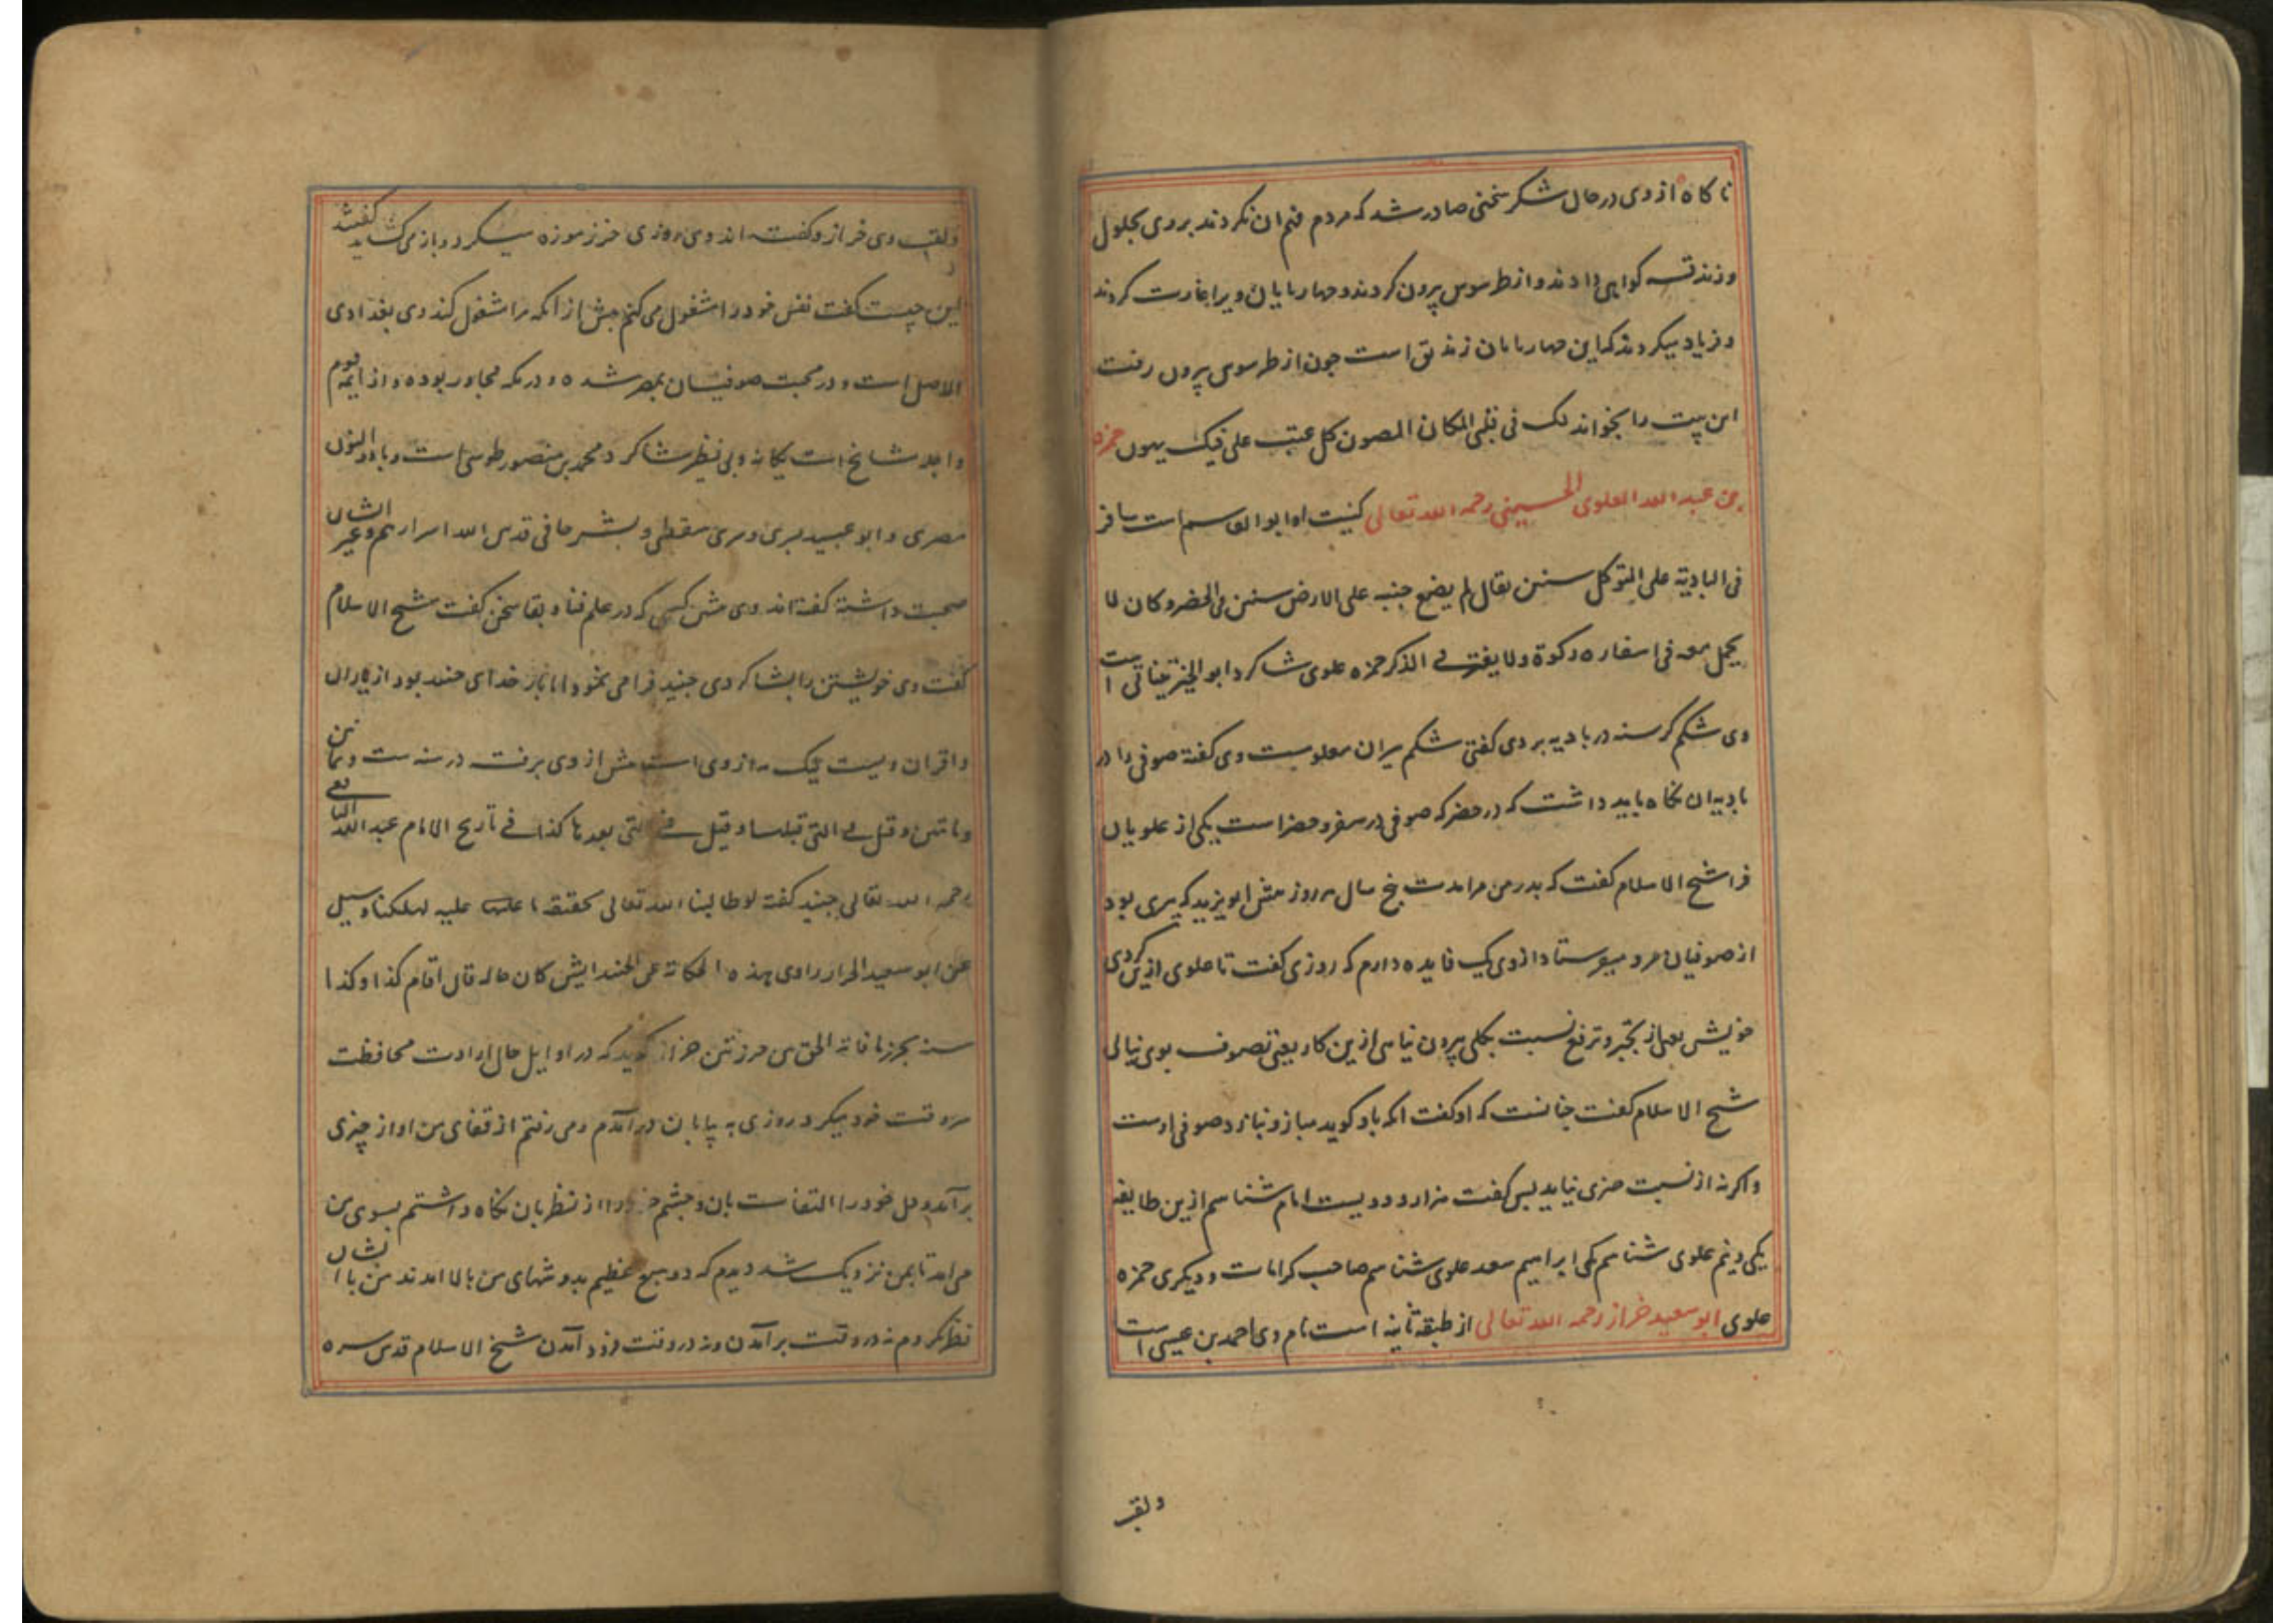 ناکاه از وی در حال شکر سخنی صادر شد که مردم فهم ان نکردند بر وی بحلول
و زندقه کواهی دادند و از طرسوس بیرون کردند و چهار بایان ویرا غارت کردند
و فریاد میکردند که این چهار بایان زندیق است چون از طرسوس بیرون رفت
این بیت را بخواند لک فی قلبی المکان المصون کل عتب علی فیک یهون حمزه
بن عبد الله العلوی الحسینی رحمه الله تعالی کنیت او ابو القاسم است سافر
فی البادیة علی التوکل سنین یقال لم یضع جنبه علی الارض سنین فی الحضر و کان لا
یحمل معه فی اسفاره رکوة و لا یفتر فی الذکر حمزه علوی شاکرد ابو الخیر تیناتی است
وی شکم کرسنه در بادیه بردی کفتی شکم سیران معلومست وی کفته صوفی را در
بادیه ان نکاه باید داشت که در حضر که صوفی در سفر و حضر است یکی از علویان
فرا شیخ الاسلام کفت که بدر من مرا مدت پنج سال هر روز پیش ابو یزید که پیری بود
از صوفیان مرو میفرستاد از وی یک فایده دارم که روزی کفت تا علوی ازین کردی
خویش یعنی از تجبر و ترفع نسبت بکلی بیرون نیایی ازین کار یعنی تصوف بوی نیابی
شیخ الاسلام کفت چنانست که او کفت انکه باو کوید مباز و نیازد صوفی اوست
و اکرنه از نسبت چیزی نیاید بس کفت هزار و دویست امام شناسم ازین طایفه
یکی و نیم علوی شناسم یکی ابراهیم سعد علوی شناسم صاحب کرامات و دیکری حمزه
علوی ابو سعید خراز رحمه الله تعالی از طبقه ثانیه است نام وی احمد بن عیسی است
ولقب
ولقب وی خراز و کفته اند وی روزی خرز موزه میکرد و باز می کشاید کفتند
این چیست کفت نفس خود را مشغول می کنم پیش از انکه مرا مشغول کند وی بغدادی
الاصل است و در صحبت صوفیان بمصر شده و در مکه مجاور بوده و از ایمه قوم
و اجله مشایخ است یکانه و بی نظیر شاکرد محمد بن منصور طوسی است و با ذو النون
مصری و ابو عبید بسری و سری سقطی و بشر حافی قدس الله اسرارهم و غیر ایشان
صحبت داشته کفته اند وی پیشین کسی که در علم فنا و بقا سخن کفت شیخ الاسلام
کفت وی خویشتن را بشاکردی جنید فرا می نمود اما باز خدای جنید بود از یاران
و اقران ویست لیک مه از وی است پیش از وی برفت در سنه ست و ثمانین
و مائتین و قیل فی التی قبلها و قیل فی التی بعدها کذا فی تاریخ الامام عبد الله الیافعی
رحمه الله تعالی جنید کفته لو طالبنا الله تعالی بحقیقة ما علیه لهلکنا و سیل
عن ابو سعید الخراز راوی هذه الحکایة عن الجنید ایش کان حاله قال اقام کذا و کذا
سنه یخرز ما فاته الحق بین خرزتین خراز کوید که در اوایل حال ارادت محافظت
سر وقت خود میکرد روزی به بیابان در آمدم و می رفتم از قفای من اواز چیزی
بر آمد دل خود را التفات بان و چشم خود را از نظر بان نکاه داشتم بسوی من
می امد تا بمن نزدیک شد دیدم که دو سبع عظیم بدوشهای من بالا امدند من با ایشان
نظر نکردم نه در وقت بر آمدن و نه در وقت فرود آمدن شیخ الاسلام قدس سره